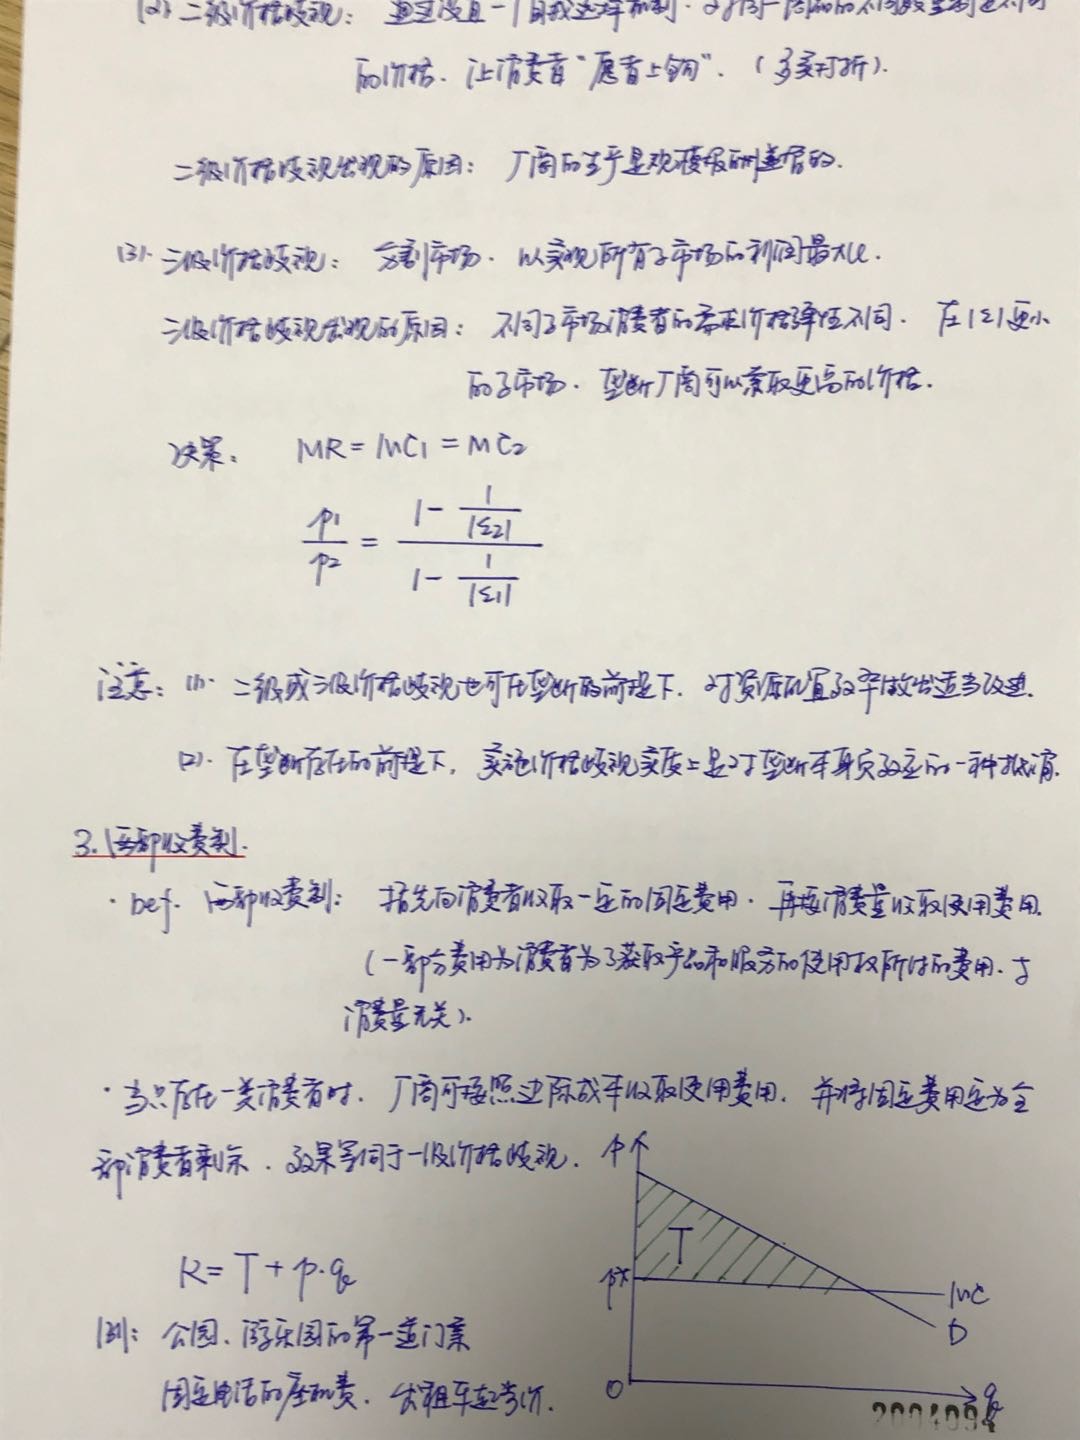 (2) 二级价格歧视: 通过设置一个自我选择机制. 对同一商品的不同数量制定不同
的价格. 让消费者"愿者上钩". (多买打折).
二级价格歧视出现的原因: 厂商的生产是规模报酬递增的.
(3). 三级价格歧视: 分割市场. 以实现所有子市场的利润最大化.
三级价格歧视出现的原因: 不同子市场消费者的需求价格弹性不同. 在|ε|更小
的子市场. 垄断厂商可以索取更高的价格.
决策: MR = MC1 = MC2
p1/p2 = (1 - 1/|ε2|) / (1 - 1/|ε1|)
注意: (1). 二级或三级价格歧视也可在垄断的前提下. 对资源配置效率做出适当改进.
(2). 在垄断存在的前提下, 实施价格歧视实质上是对垄断本身负效应的一种抵消.
3. 两部收费制.
· Def. 两部收费制: 指先向消费者收取一定的固定费用. 再按消费量收取使用费用.
(一部分费用为消费者为了获取产品和服务的使用权所付的费用. 与
消费量无关).
· 当只存在一类消费者时. 厂商可按照边际成本收取使用费用. 并将固定费用定为全
部消费者剩余. 效果等同于一级价格歧视.
P
T
R = T + p·q
p*
MC
D
例: 公园、游乐园的第一道门票
固定电话的座机费. 出租车起步价.
0
q